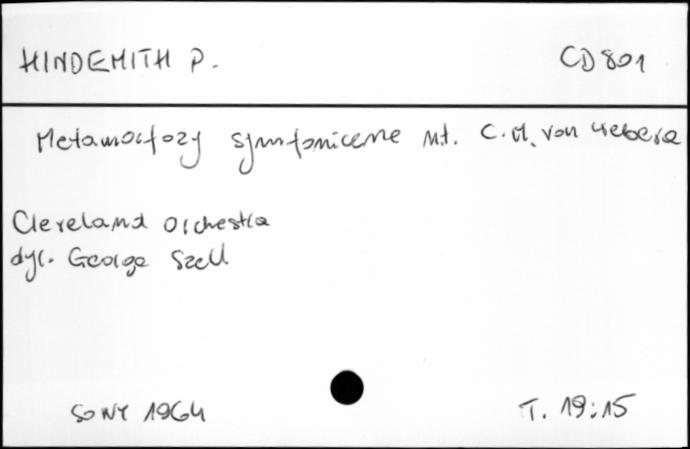 HINDEMITH P.
CD 801
Metamorfozy symfoniczne nt. C.M. von Webera
Cleveland Orchestra
dyr. George Szell
SONY 1964
T. 19:15